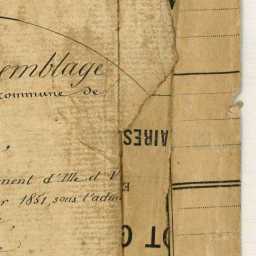 emblage
commune de
ment d'Ille et V
r 1851, sous l'adm
AIRES
E
OT